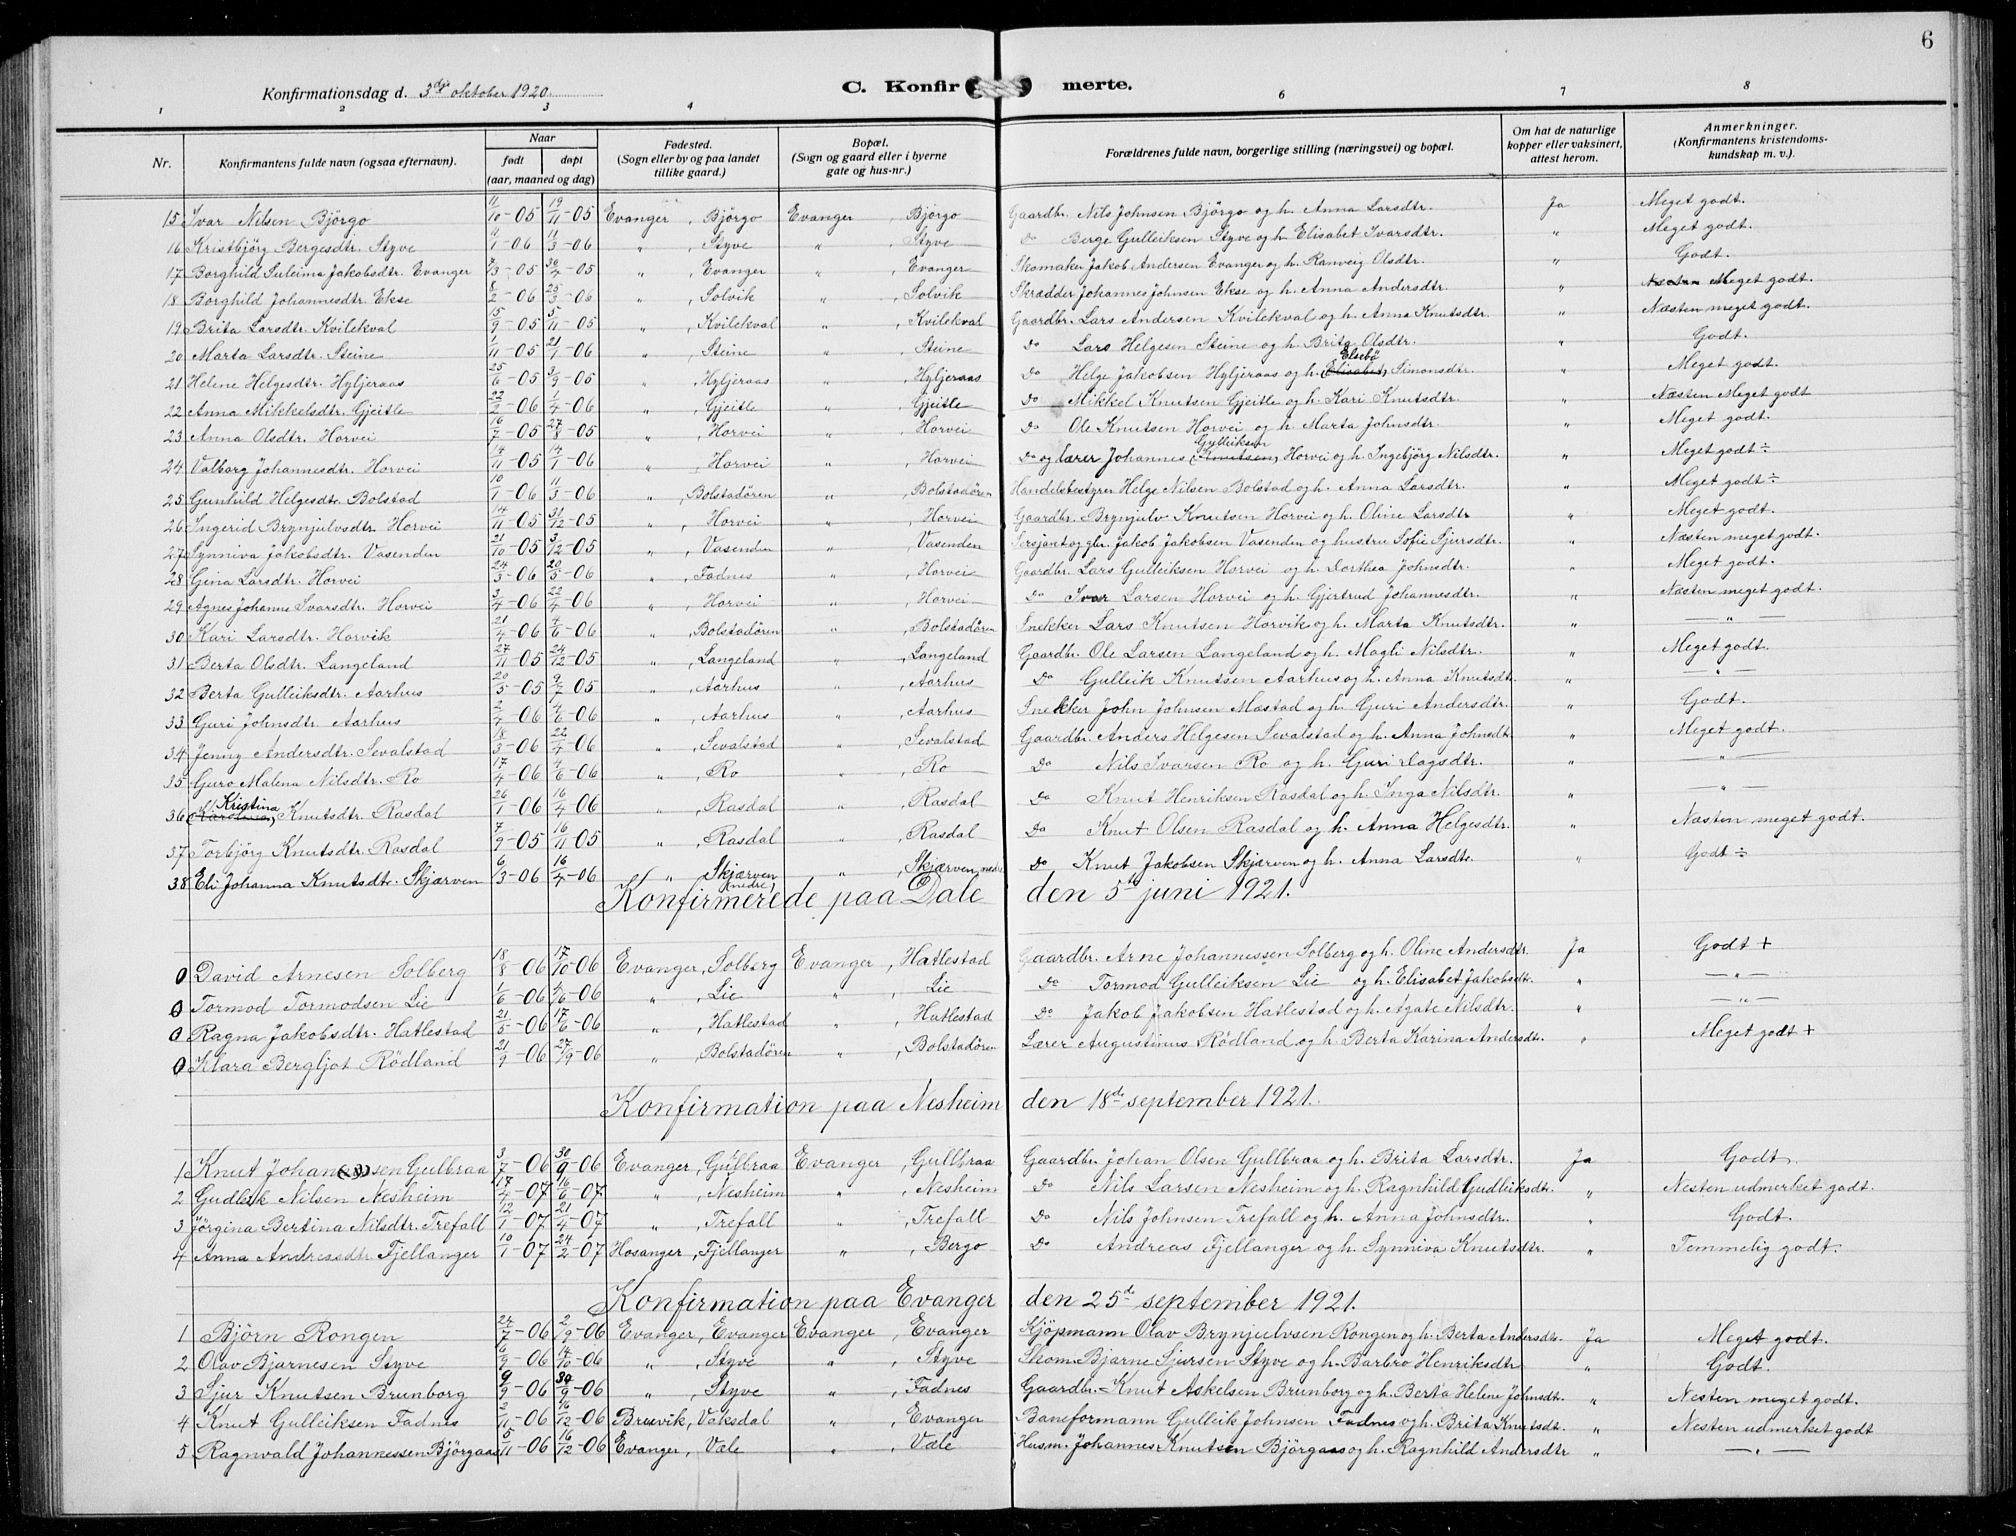 6
Konfirmationsdag d. 3dje oktober 1920. C. Konfirmerte.
1 2 3 4 6 7 8
Nr. Konfirmantens fulde navn (ogsaa efternavn). Naar født døpt (aar, maaned og dag) Fødested. (Sogn eller by og paa landet tillike gaard.) Bopæl. (Sogn og gaard eller i byerne gate og hus-nr.) Forældrenes fulde navn, borgerlige stilling (næringsvei) og bopæl. Om hat de naturlige kopper eller vaksinert, attest herom. Anmerkninger. (Konfirmantens kristendomskundskap m. v.).
15 Ivar Nilsen Björgo 11/10-05 19/11-05 Evanger, Björgo Evanger, Björgo Gaardbr. Nils Johnsen Björgo og h. Anna Larsdtr. Ja Meget godt.
16 Kristbjörg Bergesdtr. Styve 11/1-06 11/3-06 " , Styve " , Styve Do Berge Gulleiksen Styve og h. Elisabet Ivarsdtr. " Meget godt.
17 Borghild Suleima Jakobsdtr. Evanger -05 -05 " , Evanger " , Evanger Skomaker Jakob Andersen Evanger og h. Ranveig Olsdtr. " Godt.
18 Borghild Johannesdtr. Ekse 8/2-06 25/3-06 " , Solvik " , Solvik Skrædder Johannes Johnsen Ekse og h. Anna Andersdtr. " Næsten Meget godt.
19 Brita Larsdtr. Kvilekval 15/9-05 5/11-05 " , Kvilekval " , Kvilekval Gaardbr. Lars Andersen Kvilekval og h. Anna Knutsdtr. " Næsten meget godt.
20 Marta Larsdtr. Steine 1/11-05 21/1-06 " , Steine " , Steine Do Lars Helgesen Steine og h. Brita Olsdtr. " Godt.
21 Helene Helgesdtr. Hyljeraas 25/6-05 3/9-05 " , Hyljeraas " , Hyljeraas Do Helge Jakobsen Hyljeraas og h. (Elisabet) Elsebö Simonsdtr. " Meget godt.
22 Anna Mikkelsdtr. Gjeitle 22/2-06 1/4-06 " , Gjeitle " , Gjeitle Do Mikkel Knutsen Gjeitle og h. Kari Knutsdtr. " Næsten Meget godt
23 Anna Olsdtr. Horvei 16/7-05 27/8-05 " , Horvei " , Horvei Do Ole Knutsen Horvei og h. Marta Johnsdtr. " Meget godt.
24 Valborg Johannesdtr. Horvei 14/11-05 14/1-06 " , Horvei " , Horvei Do og lærer Johannes (Knutsen) Gulleiksen Horvei og h. Ingebjörg Nilsdtr. " Meget godt ÷
25 Gunhild Helgesdtr. Bolstad 10/1-06 11/3-06 " , Bolstadören " , Bolstadören Handelsbestyrer Helge Nilsen Bolstad og h. Anna Larsdtr. " Meget godt ÷
26 Ingerid Brynjulvsdtr. Horvei 14/11-05 31/12-05 " , Horvei " , Horvei Gaardbr. Brynjulv Knutsen Horvei og h. Oline Larsdtr " Meget godt.
27 Synniva Jakobsdtr. Vasenden 21/10-05 3/12-05 " , Vasenden " , Vasenden Sersjant og gbr. Jakob Jakobsen Vasenden og hustru Sofie Sjursdtr. " Næsten meget godt.
28 Gina Larsdtr. Horvei 24/3-06 20/5-06 " , Fadnes " , Horvei Gaardbr. Lars Gulleiksen Horvei og h. Dorthea Johnsdtr. " Meget godt.
29 Agnes Johanne Ivarsdtr. Horvei 3/4-06 22/4-06 " , Horvei " , Horvei Do Ivar Larsen Horvei og h. Gjertrud Johannesdtr. " Næsten meget godt.
30 Kari Larsdtr. Horvik 21/4-06 4/6-06 " , Bolstadören " , Bolstadören Snekker Lars Knutsen Horvik og h. Marta Knutsdtr. " — " —
31 Berta Olsdtr. Langeland 27/11-05 24/12-05 " , Langeland " , Langeland Gaardbr. Ole Larsen Langeland og h. Magli Nilsdtr. " Meget godt.
32 Berta Gulleiksdtr. Aarhus 20/5-05 9/7-05 " , Aarhus " , Aarhus Do Gulleik Knutsen Aarhus og h. Anna Knutsdtr. " — " —
33 Guri Johnsdtr. Aarhus 2/4-06 4/6-06 " , Aarhus " , Aarhus Snekker John Johnsen Mæstad og h. Guri Andersdtr. " Godt.
34 Jenny Andersdtr. Sevalstad 18/3-06 22/4-06 " , Sevalstad " , Sevalstad Gaardbr. Anders Helgesen Sevalstad og h. Anna Johnsdt. " Meget godt.
35 Guro Malena Nilsdtr. Ro 17/4-06 4/6-06 " , Ro " , Ro Do Nils Ivarsen Ro og h. Guri Dagsdtr. " — " —
36 (Karolina) Kristina Knutsdtr. Rasdal 26/1-06 16/4-06 " , Rasdal " , Rasdal Do Knut Henriksen Rasdal og h. Inga Nilsdtr. " — " —
37 Torbjörg Knutsdtr. Rasdal 7/9-05 16/11-05 " , Rasdal " , Rasdal Do Knut Olsen Rasdal og h. Anna Helgesdtr. " Næsten meget godt.
38 Eli Johanna Knutsdtr. Skjærven 6/3-06 16/4-06 " , Skjærven (nedre) " , Skjærven nedre Do Knut Jakobsen Skjærven og h. Anna Larsdtr. " Godt ÷
Konfirmerede paa Dale den 5te juni 1921.
0 David Arnesen Solberg 18/8-06 17/10-06 Evanger, Solberg Evanger, Hatlestad Gaardbr. Arne Johannessen Solberg og h. Oline Andersdtr. Ja Godt +
0 Tormod Tormodsen Lie 1/6-06 4/6-06 " , Lie " , Lie Do Tormod Gulleiksen Lie og h. Elisabet Jakobsdtr. " — " —
0 Ragna Jakobsdtr. Hatlestad 21/5-06 17/6-06 " , Hatlestad " , Hatlestad Do Jakob Jakobsen Hatlestad og h. Agate Nilsdtr. " — " —
0 Klara Bergljot Rödland 21/9-06 27/9-06 " , Bolstadören " , Bolstadören Lærer Augustinus Rödland og h. Berta Karina Andersdtr. " Meget godt +
Konfirmation paa Nesheim den 18de september 1921.
1 Knut Johansen Gulbraa 3/7-06 30/9-06 Evanger, Gulbraa Evanger, Gullbraa Gaardbr. Johan Olsen Gullbraa og h. Brita Larsdtr. Ja Godt.
2 Gudleik Nilsen Nesheim 17/4-07 16/6-07 " , Nesheim " , Nesheim Do Nils Larsen Nesheim og h. Ragnhild Gudleiksdtr. " Nesten udmerket godt.
3 Jörgina Bertina Nilsdtr. Trefall 12/1-07 21/4-07 " , Trefall " , Trefall Do Nils Johnsen Trefall og h. Anna Johnsdtr. " Godt.
4 Anna Andreasdtr Fjellanger 10/1-07 24/2-07 Hosanger, Fjellanger " , Bergo Do Andreas Fjellanger og h. Synniva Knutsdtr. " Temmelig godt.
Konfirmation paa Evanger den 25de september 1921.
1 Björn Rongen 27/7-06 2/9-06 Evanger, Evanger Evanger, Evanger Kjöpmann Olav Brynjulvsen Rongen og h. Berta Andersdtr. Ja Meget godt.
2 Olav Bjarnesen Styve 6/9-06 14/10-06 " , Styve " , Styve Skom. Bjarne Sjursen Styve og h. Barbro Henriksdtr " Godt.
3 Sjur Knutsen Brunborg 9/9-06 30/9-06 " , Styve " , Fadnes Gaardbr. Knut Askelsen Brunborg og h. Berta Helene Johnsdtr. " Nesten meget godt.
4 Knut Gulleiksen Fadnes 2/11-06 16/12-06 Bruvik, Vaksdal " , Evanger Baneformann Gulleik Johnsen Fadnes og h. Brita Knutsdt. " Nesten udmerket godt
5 Ragnvald Johannessen Björgaas 5/11-06 16/12-06 Evanger, Væle " , Væle Husm. Johannes Knutsen Björgaas og h. Ragnhild Andersdtr " — " —